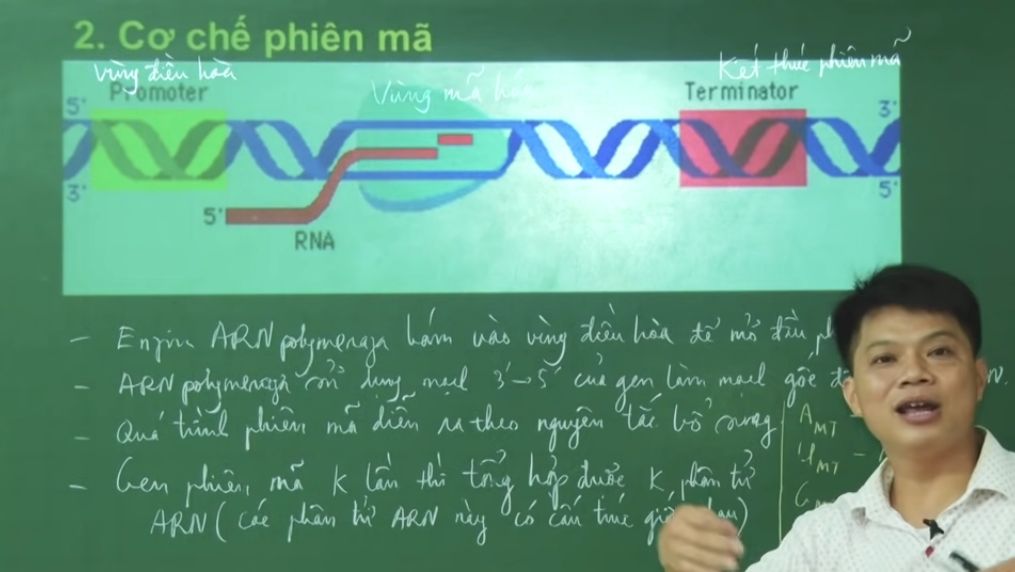 2. Cơ chế phiên mã
Vùng điều hoà
Vùng mã hóa
Kết thúc phiên mã
Promoter
Terminator
5'
3'
3'
5'
5'
RNA
- Enzim ARN polymeraza bám vào vùng điều hòa để mở đầu
- ARN polymeraza sử dụng mạch 3'→5' của gen làm mạch gốc
- Quá trình phiên mã diễn ra theo nguyên tắc bổ sung
A MT
U MT -
- Gen phiên mã K lần thì tổng hợp được K phân tử
ARN (các phân tử ARN này có cấu trúc giống nhau)